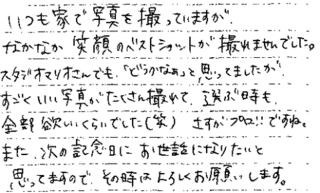 いつも家で写真を撮っていますが、
なかなか笑顔のベストショットが撮れませんでした。
スタジオマリオさんでも、「どうかなぁ」と思ってましたが
すごくいい写真がたくさん撮れて、選ぶ時も
全部欲いくらいでした(笑) さすがプロ!!ですね。
また、次の記念日にお世話になりたいと
思ってますので、その時はよろしくお願いします。